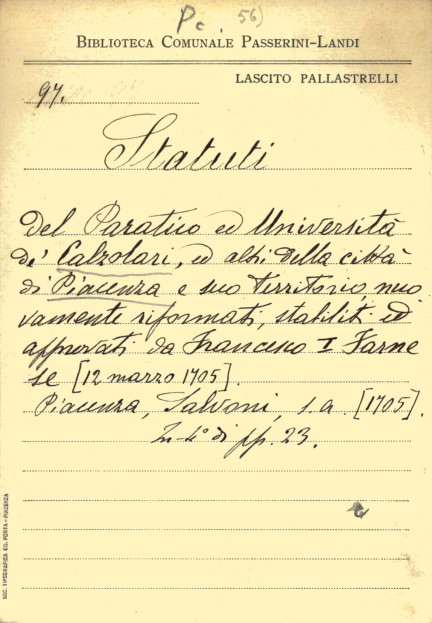 Pc. 56)
BIBLIOTECA COMUNALE PASSERINI-LANDI
LASCITO PALLASTRELLI
97.
Statuti
Del Paratico ed Università
de' Calzolari, ed altri della città
di Piacenza e suo territorio, nuo
vamente riformati, stabiliti ed
approvati da Francesco I Farne
se [12 marzo 1705].
Piacenza, Salvoni, s. a. [1705].
In-4° di pp. 23.
SOC. TIPOGRAFICA ED. PORTA - PIACENZA